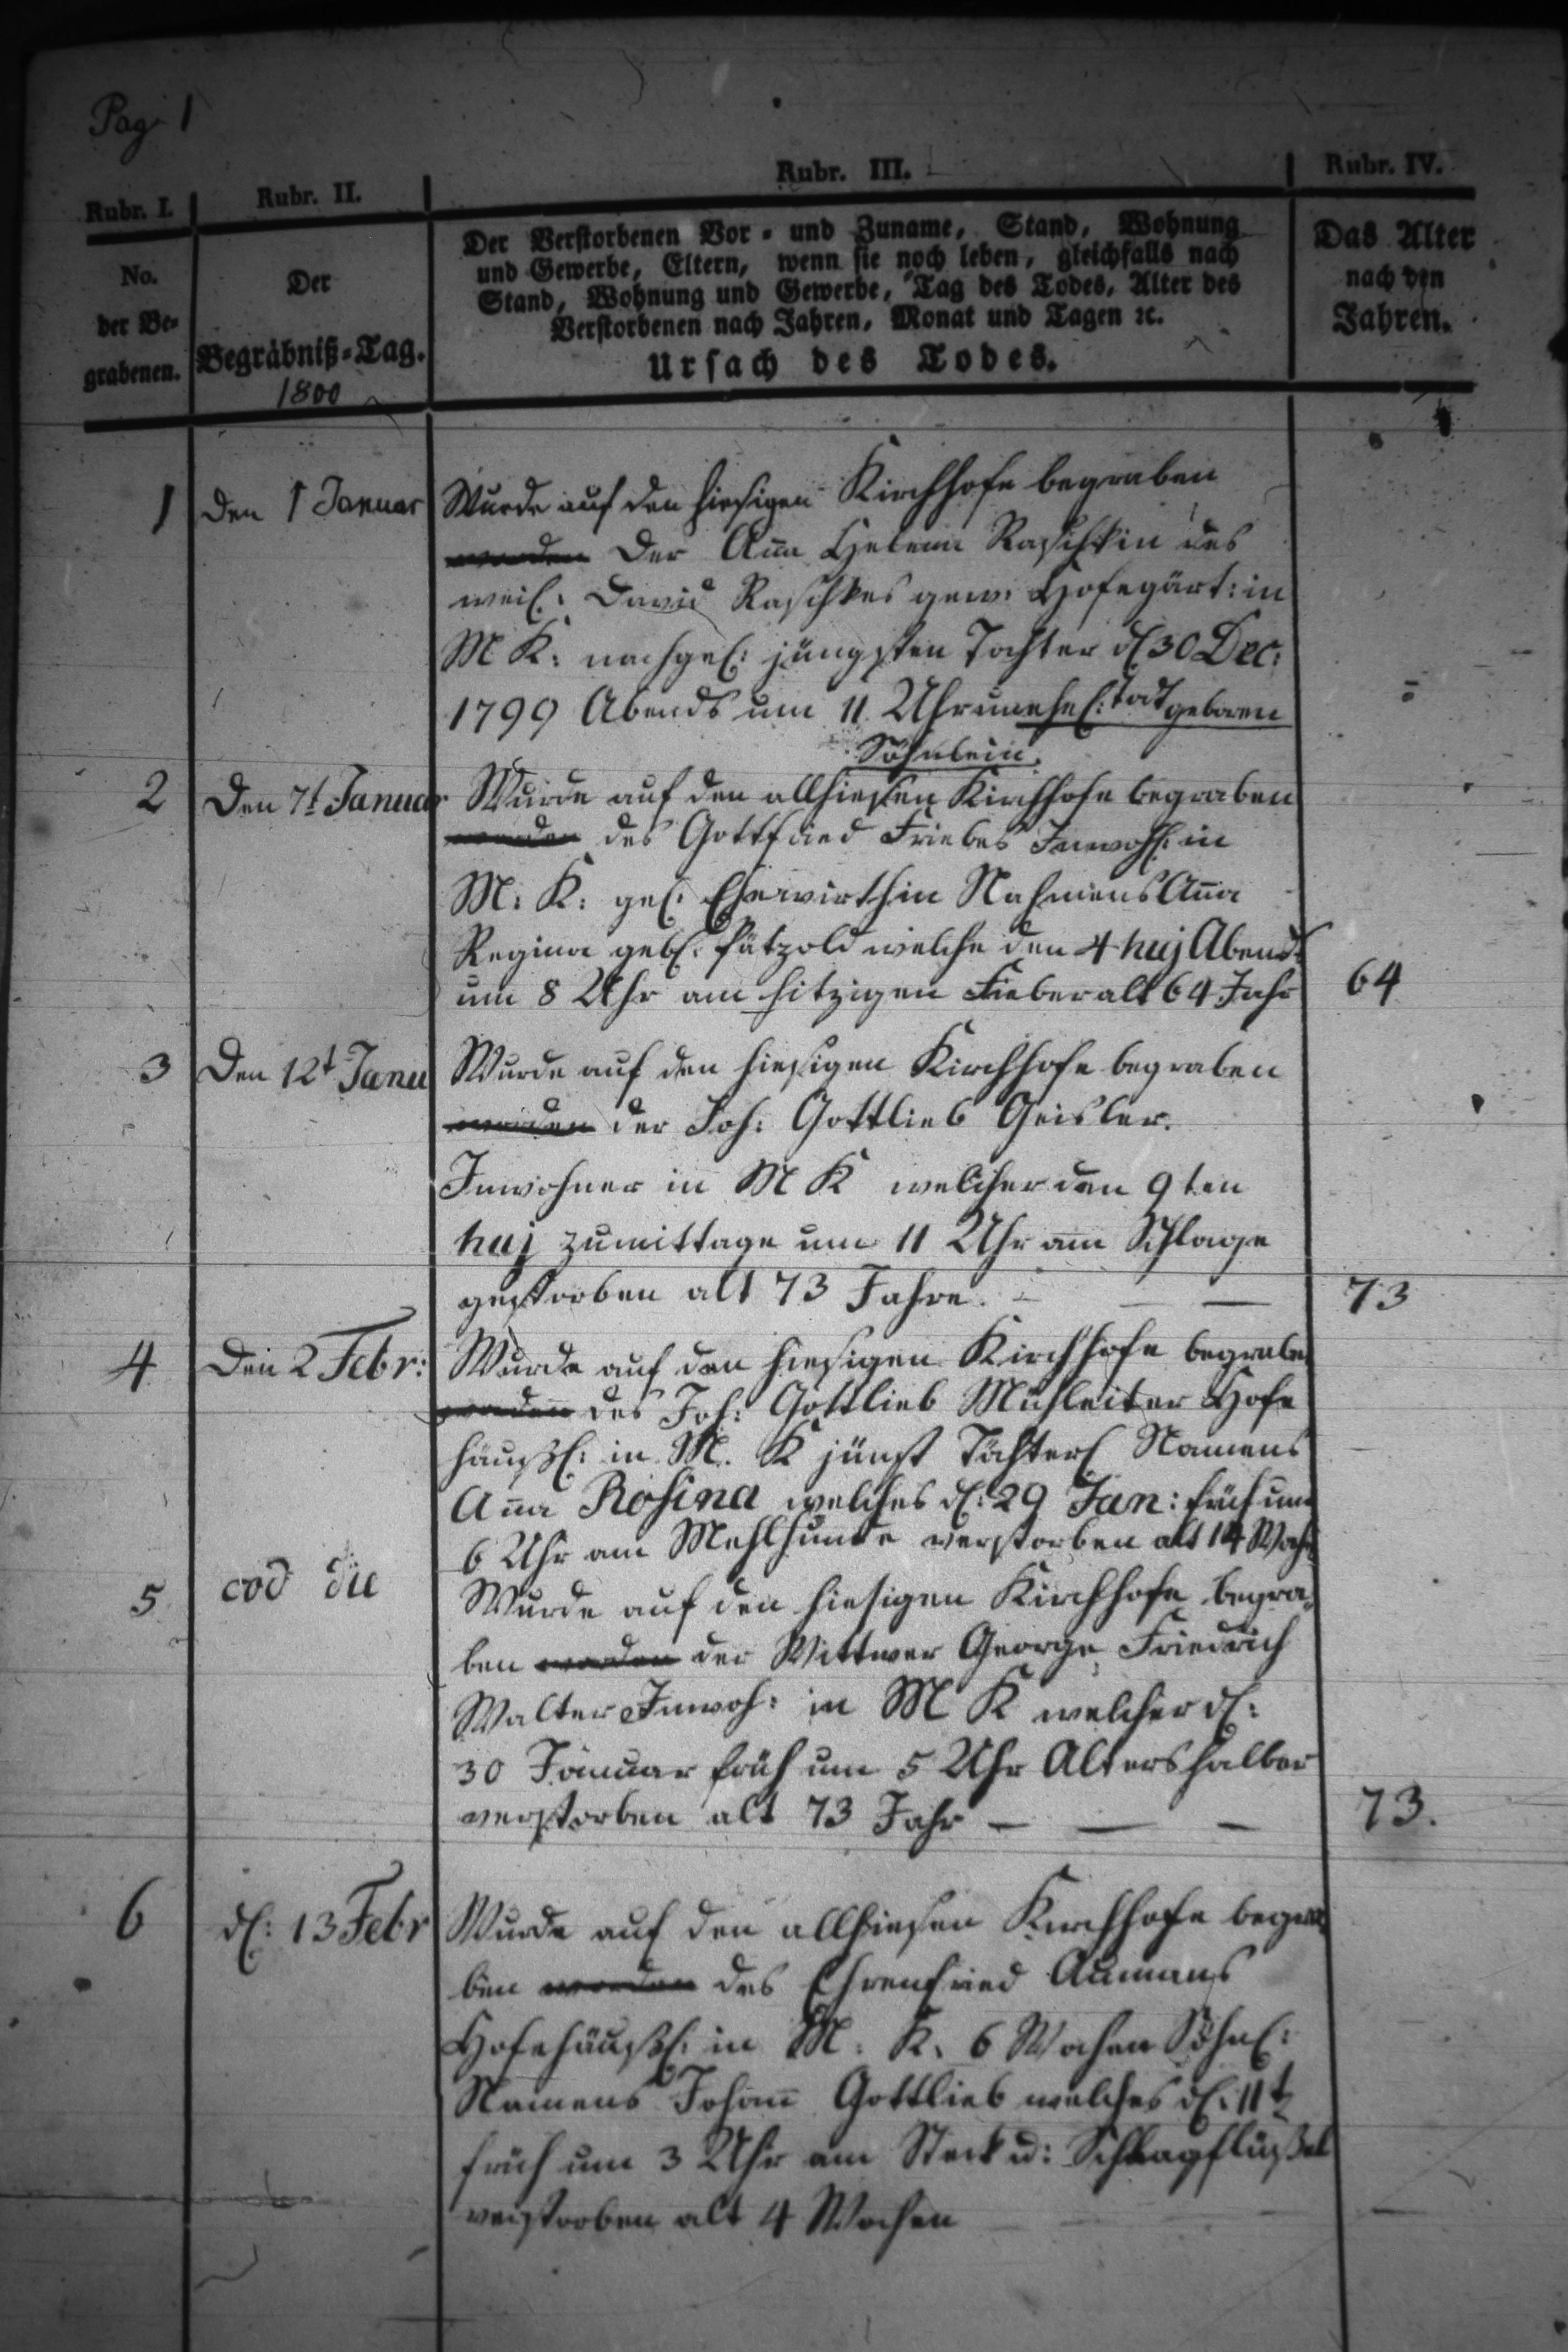 Pag 1
Rubr. I.
Rubr. II.
Rubr. III.
Rubr. IV.
No.
der Be=
grabenen.
Der
Begräbniß=Tag.
1800
Der Verstorbenen Vor= und Zuname, Stand, Wohnung
und Gewerbe, Eltern, wenn sie noch leben, gleichfalls nach
Stand, Wohnung und Gewerbe, Tag des Todes, Alter des
Verstorbenen nach Jahren, Monat und Tagen ꝛc.
Ursach des Todes.
Das Alter
nach den
Jahren.
1
Den 1 Januar
Wurde auf den hiesigen Kirchhofe begraben
worden Der Aña Helena Raschkin des
weil: David Raschkes gew: Hofegärt: in
M K: nachgel: jüngsten Tochter d 30 Dec:
1799 Abends um 11 Uhr unehel: todt geboren
Söhnlein.
2
Den 7t Januar
Wurde auf den allhiesen Kirchhofe begraben
worden des Gottfried Friebes Inwoh: in
M: K: gel: Ehewirthin Nahmens Aña
Regina geb: Pätzold welche den 4 huj Abends
um 8 Uhr am hitzigen Fieber alt 64 Jahr
64
3
Den 12t Janu
Wurde auf den hiesigen Kirchhofe begraben
worden der Joh: Gottlieb Geisler.
Inwohner in M K welcher den 9ten
huj zumittage um 11 Uhr am Schlage
gestorben alt 73 Jahre. - — —
73
4
Den 2 Febr:
Wurde auf den hiesigen Kirchhofe begraben
worden des Joh: Gottlieb Mühleiter Hofe
häußl: in M. K jüngst Töchterl Namens
Aña Rosina welches d: 29 Jan: früh um
6 Uhr am verstorben alt 14 Woch
5
eod die
Wurde auf den hiesigen Kirchhofe begra,
ben worden der Wittwer George Friedrich
Walter Inwoh: in M K welcher d:
30 Januar früh um 5 Uhr Altershalber
verstorben alt 73 Jahr — — —
73.
6
d: 13 Febr
Wurde auf den allhiesen Kirchhofe begra
ben worden des Ehrenfried Aumans
Hofehäußl: in M. K. 6 Wochen Söhnl:
Namens Johañ Gottlieb welches d: 11t
früh um 3 Uhr am Steck u: Schlagflüßel
verstorben alt 4 Wochen